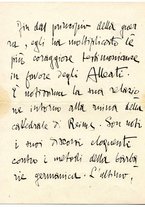 Fin dal principio della guer
ra, egli ha moltiplicato le
più coraggiose testimonianze
in favore degli Alleati.
È notissima la sua relazio
ne intorno alla ruina della
cattedrale di Reims. Son noti
i suoi discorsi eloquenti
contro i metodi della barba
rie germanica. L'ultimo,